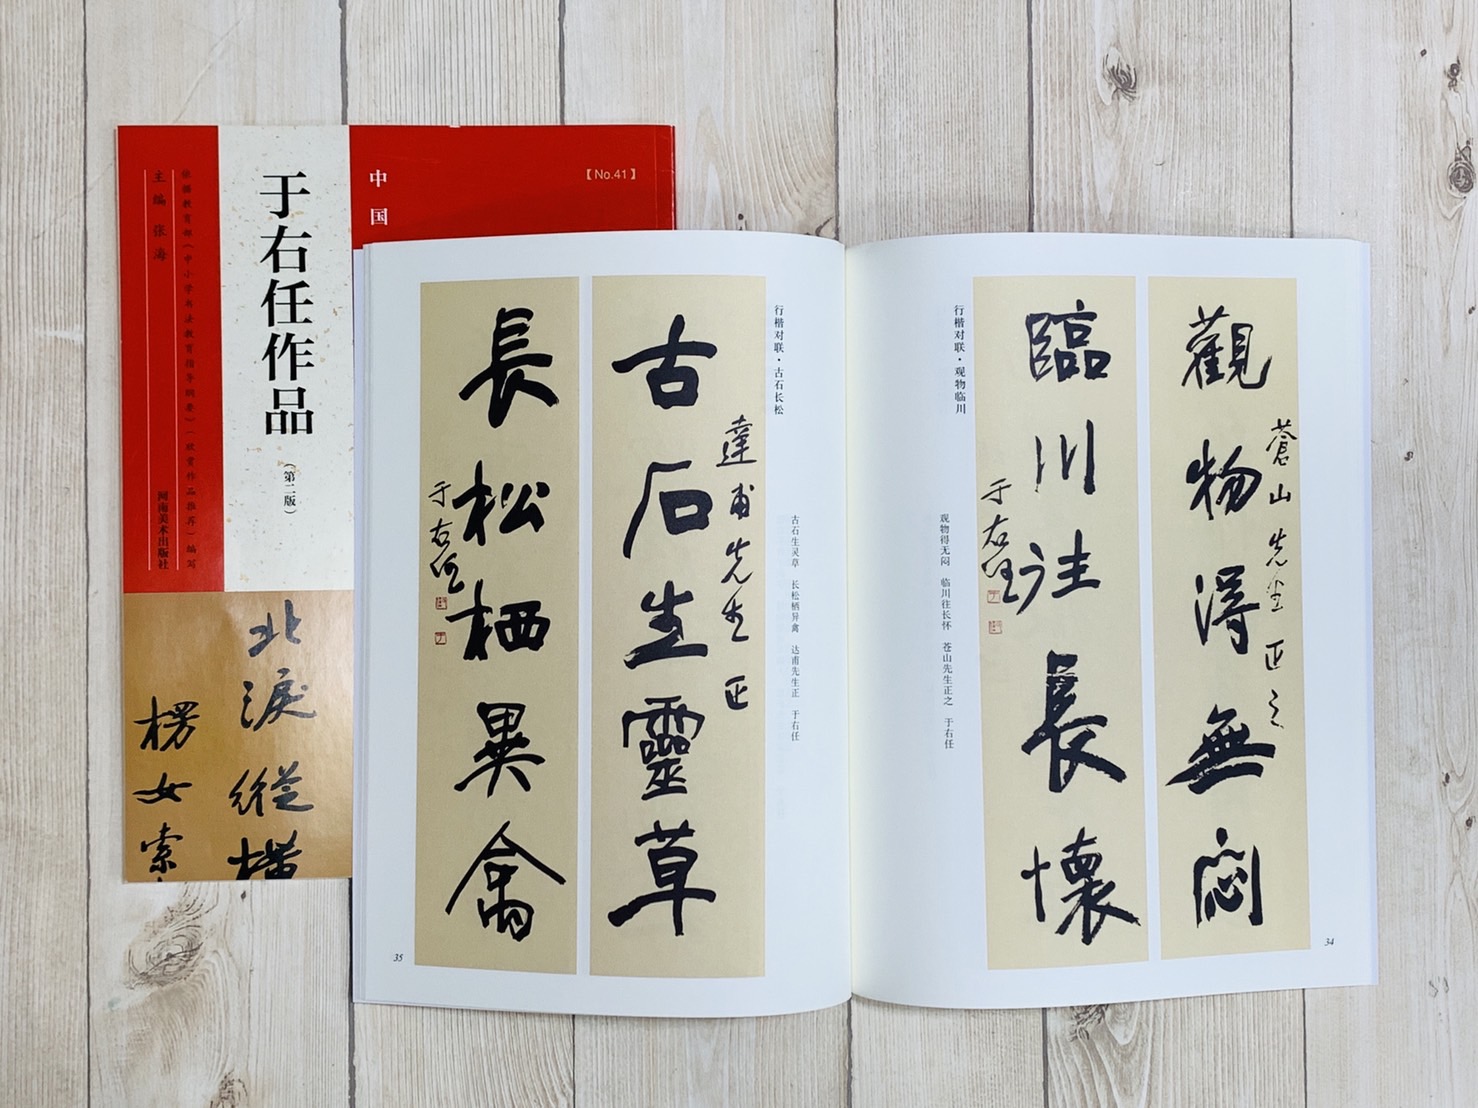 中国
【No.41】
于右任作品
（第二版）
依据教育部《中小学书法教育指导纲要》“欣赏作品推荐”编写
主编 张海
河南美术出版社
北淚縱橫
楞女索
觀物得無悶
蒼山先生正之
臨川往長懷
于右任
行楷对联·观物临川
观物得无闷 临川往长怀 苍山先生正之 于右任
34
古石生靈草
達甫先生正
長松栖異禽
于右任
行楷对联·古石长松
古石生灵草 长松栖异禽 达甫先生正 于右任
35